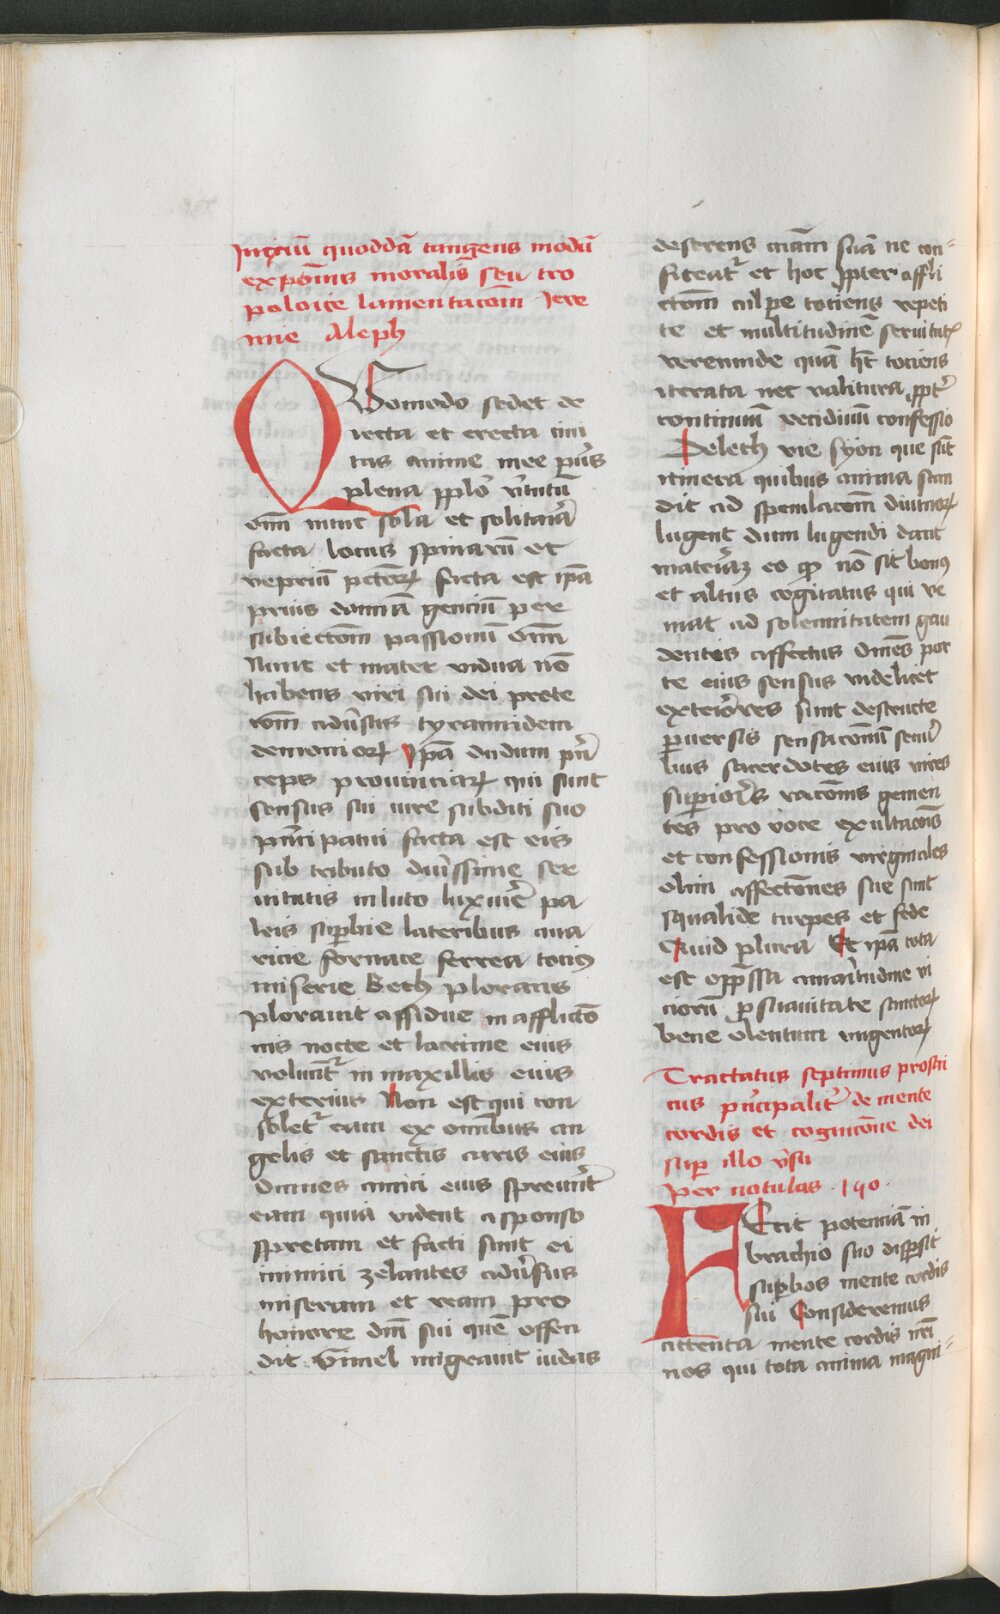 Iniciū quoddā tangens modū
expōnis moralis seu tro
poloice lamentacōm Jere
mie Aleph
QVomodo sedet de
iecta et erecta ciui
tas anime mee pri9s
plena pplō v̓tutū
om̄ nunc sola et solitaria
facta locus spinarū et
vepriū pctōꝝ facta est ipā
prius domīa genciū per
subiectōm passionū om̄
Nunc et mater vidua nō
habens viri sui dei prote
rōm adūsus tyrannidem
demonioꝝ Ipā dudum prī
ceps prouinciaꝝ qui sunt
sensus sui iure subditi suo
prīcipatui facta est eis
sub tributo durissime ser
uitutis in luto luxurie pa
leis supbie lateribus aua
ricie fornace ferrea toci9
miserie Beth plorans
plorauit assidue in afflictō
nis nocte et lacrime eius
voluūt in maxillis eius
exterius Non est qui con
solet eam ex omībus an
gelis et sanctis caris eius
Omnes amici eius spreuert
eam quia vident a sponso
spretam et facti sunt ei
inimici zelantes adūsus
miseram et ream pro
honore dnī sui quē offen
dit Gimel migrauit iudas
deserens cuiām suā ne con=
fiteat et hoc ppter affli
ctōm culpe totiens repeti
te et multitudinē seruitutꝭ
verecunde quā ht tociens
iterata nec valitura ppt̓
continuū recidiuū confessio
Deleth vie syon que sūt
itinera quibus anima scan
dit ad speculacōm diuinoꝝ
lugent dum lugendi dant
materiaꝫ eo ꝙ nō sit bonus
et altus cogitatus qui ve
niat ad solennitatem gau
dentis affectus Omēs por
te eius sensus videlicet
exteriores sunt destructe
puersis sensacōnū seui
bus sacerdotes eius vires
supiores racōnis gemen
tes pro voce exultacōis
et confessionis virginales
olim affectōnes sue sunt
squalide turpes et fede
Quid plura Et ipā tota
est oppssa amaritudine vi
ciorū p suauitate sanctoꝝ
bene olentium vngentoꝝ
Tractatus septimus prosai
cus prīcipalit̓ de mente
cordis et cognicōne dei
sup illo v̓su
per notulas . 190 .
FEcit potenciā in
brachio suo dispsit
supbos mente cordis
sui Consideremus
attenta mente cordis nrī
nos qui tota anima magni=